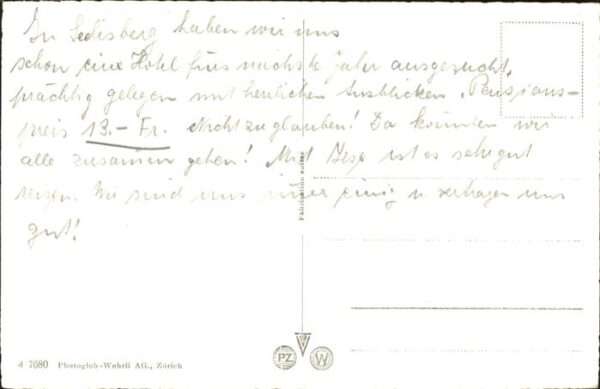 In Seelisberg haben wir uns
schon eine Hotel fürs nächste Jahr ausgesucht,
prächtig gelegen mit herrlichen Ausblicken. Pensions-
preis 13.- Fr. Nicht zu glauben! Da könnten wir
alle zusammen gehen! Mit ist es sehr gut
reisen. Wir sind uns immer einig u. vertragen uns
gut!
Fabrication suisse
4 7680 Photoglob-Wehrli AG., Zürich
PZ W